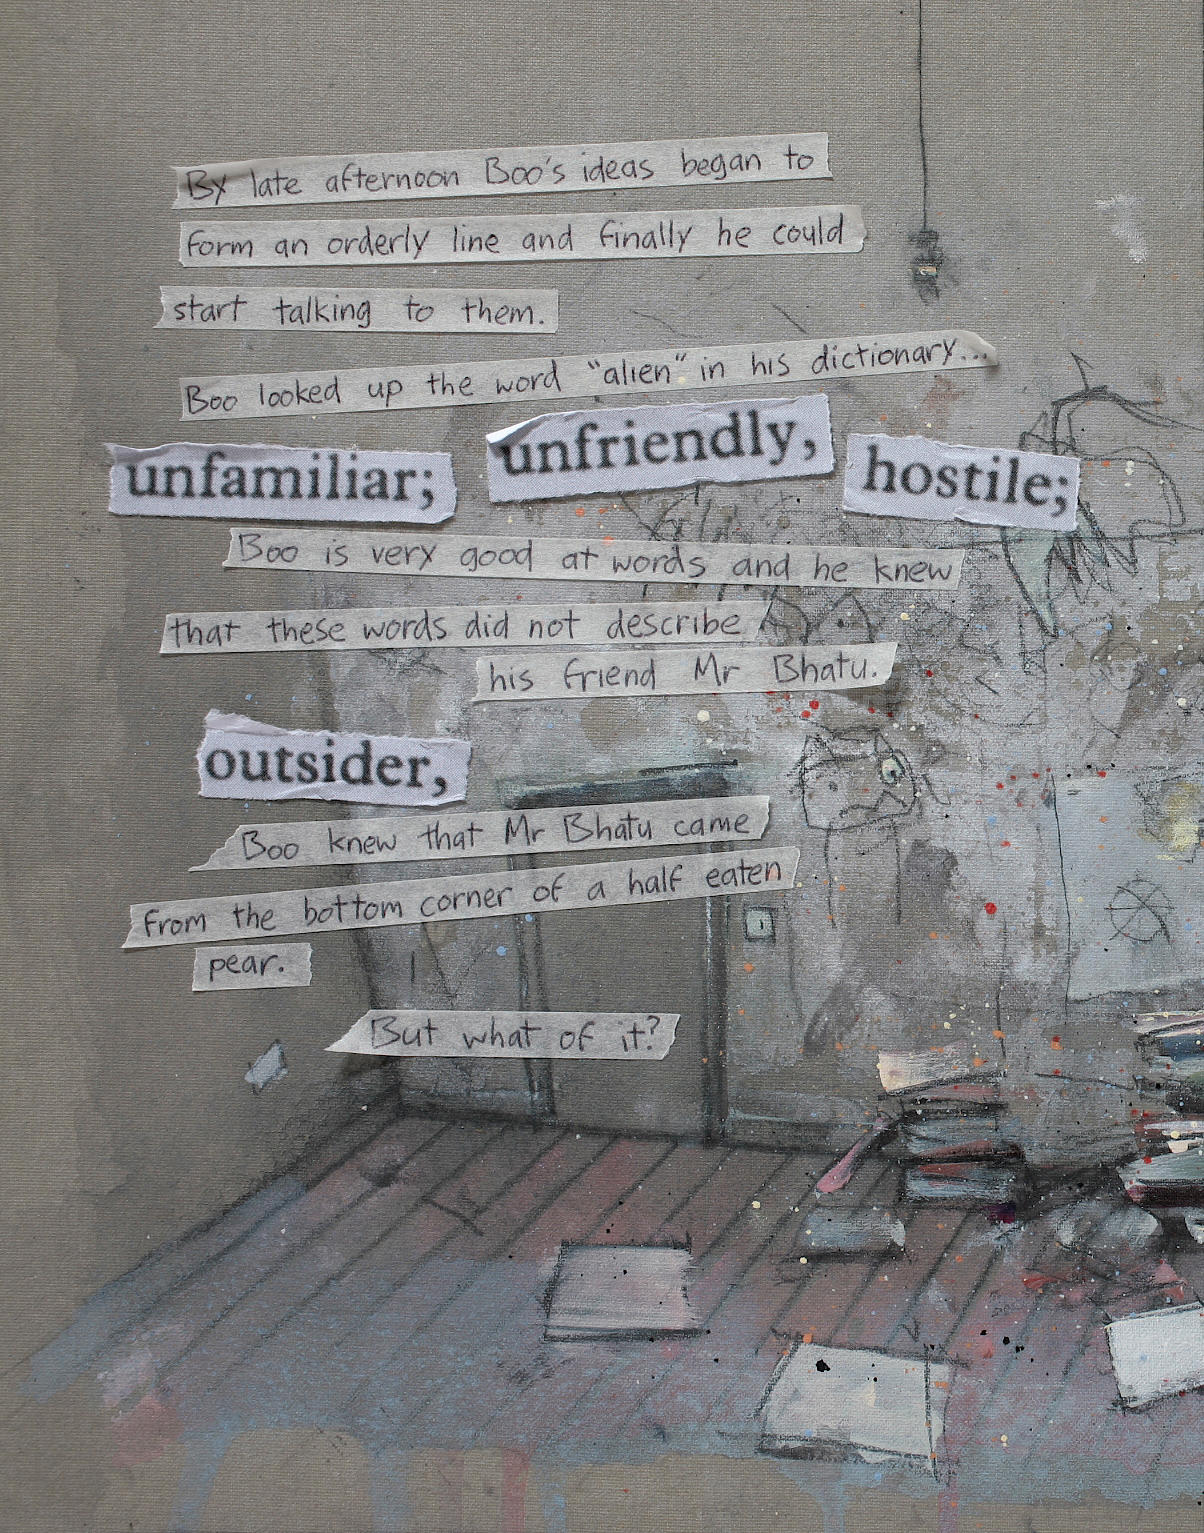 By late afternoon Boo's ideas began to
form an orderly line and finally he could
start talking to them.
Boo looked up the word "alien" in his dictionary...
unfamiliar; unfriendly, hostile;
Boo is very good at words and he knew
that these words did not describe
his friend Mr Bhatu.
outsider,
Boo knew that Mr Bhatu came
from the bottom corner of a half eaten
pear.
But what of it?